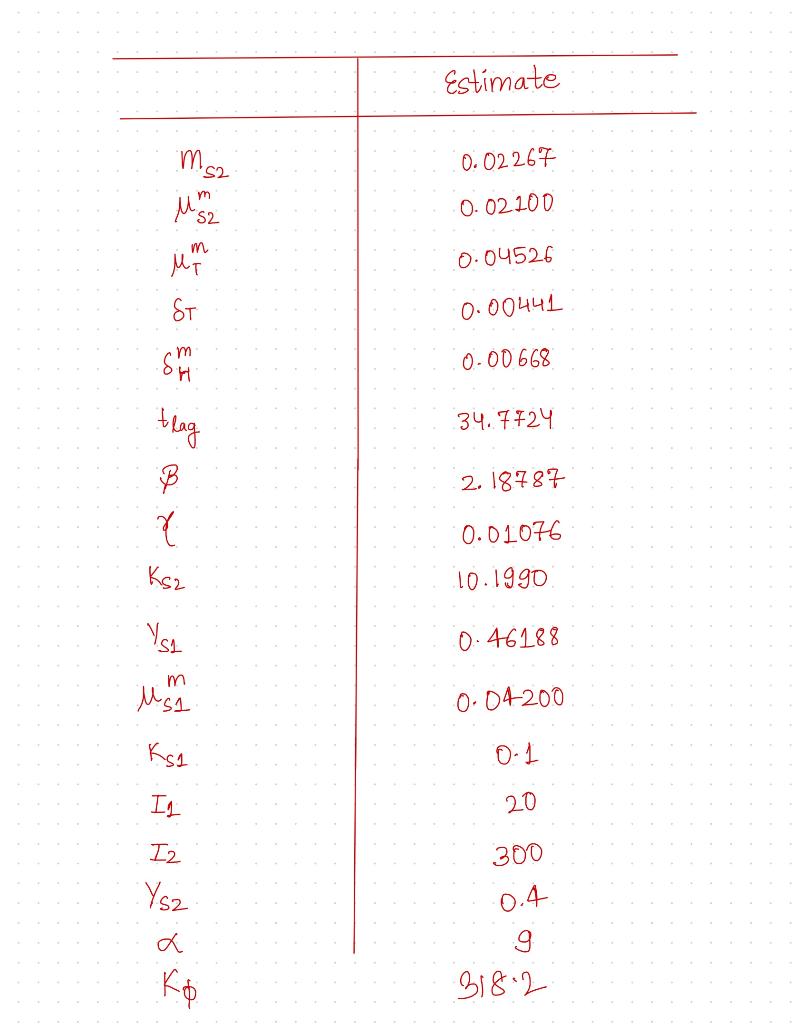 Estimate
m_S2 0.02267
μ^m_S2 0.02100
μ^m_T 0.04526
δ_T 0.00441
δ^m_H 0.00668
t_lag 34.7724
β 2.18787
γ 0.01076
K_S2 10.1990
Y_S1 0.46188
μ^m_S1 0.04200
K_S1 0.1
I_1 20
I_2 300
Y_S2 0.4
α 9
K_ϕ 318.2